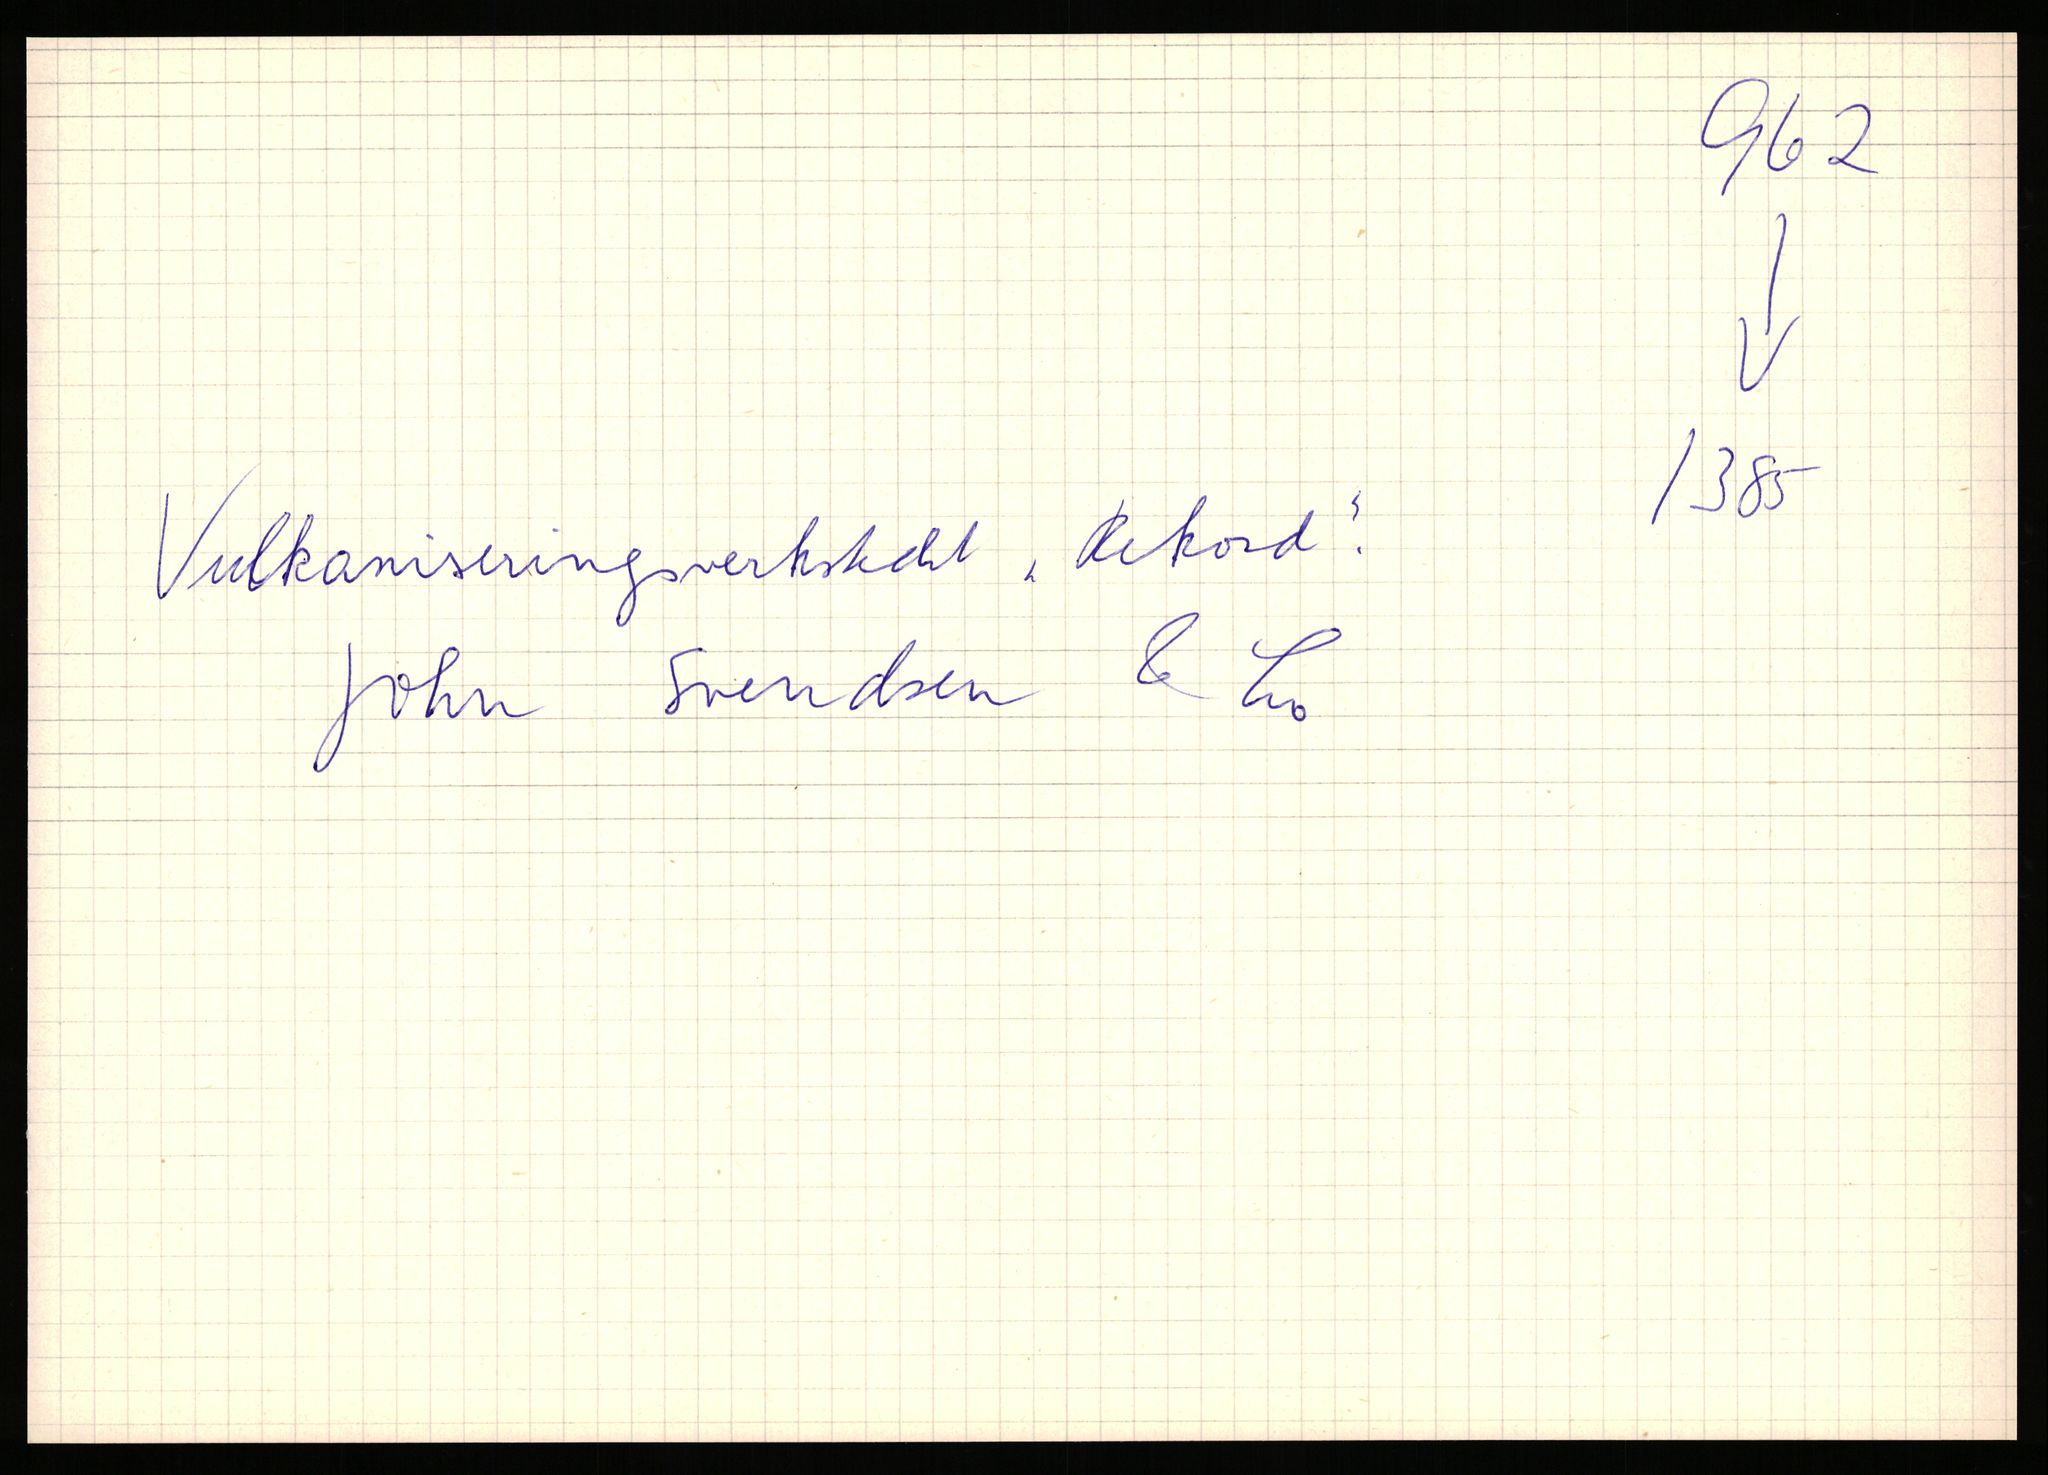 962
↓
1385
Vulkaniseringsverkstedet „Rekord“.
John Svendsen & Co